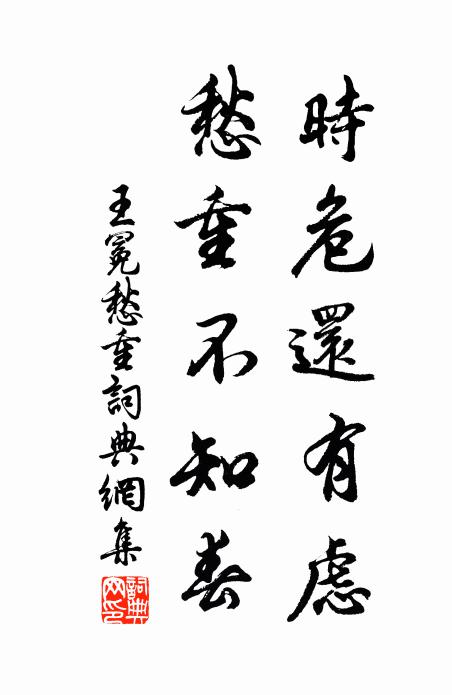 時危還有慮
愁重不知春
王冕愁重詞典網集
詞典网印